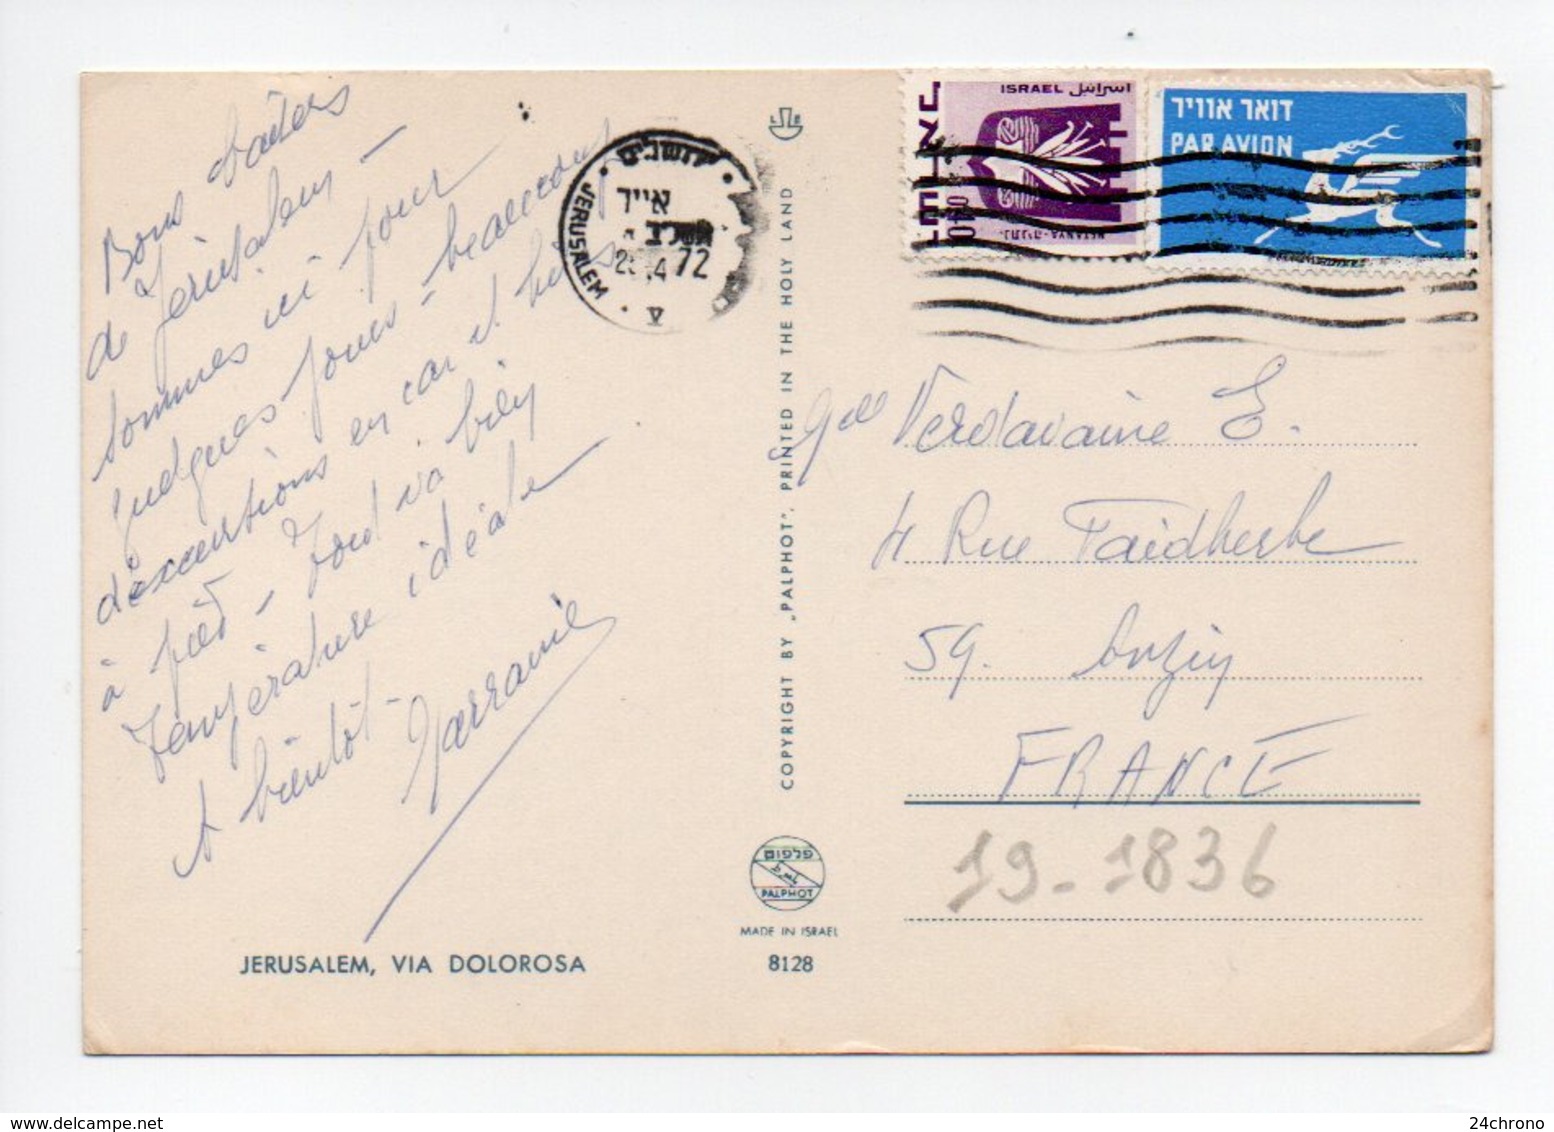 Bons baisers
de Jérusalem –
sommes ici pour
quelques jours – beaucoup
d'excursions en car et
à pied – Tout va bien
Température idéale
A bientôt –
JERUSALEM, VIA DOLOROSA
ירושלים
אייר
תשל"ב
72
JERUSALEM
COPYRIGHT BY „PALPHOT”, PRINTED IN THE HOLY LAND
פלפוט
PALPHOT
MADE IN ISRAEL
8128
ISRAEL اسرائيل
ישראל
0.40
נתניה - NETANYA
דואר אוויר
PAR AVION
Verdavaine E.
4 Rue Faidherbe
59. Anzin
FRANCE
19-1836
24chrono